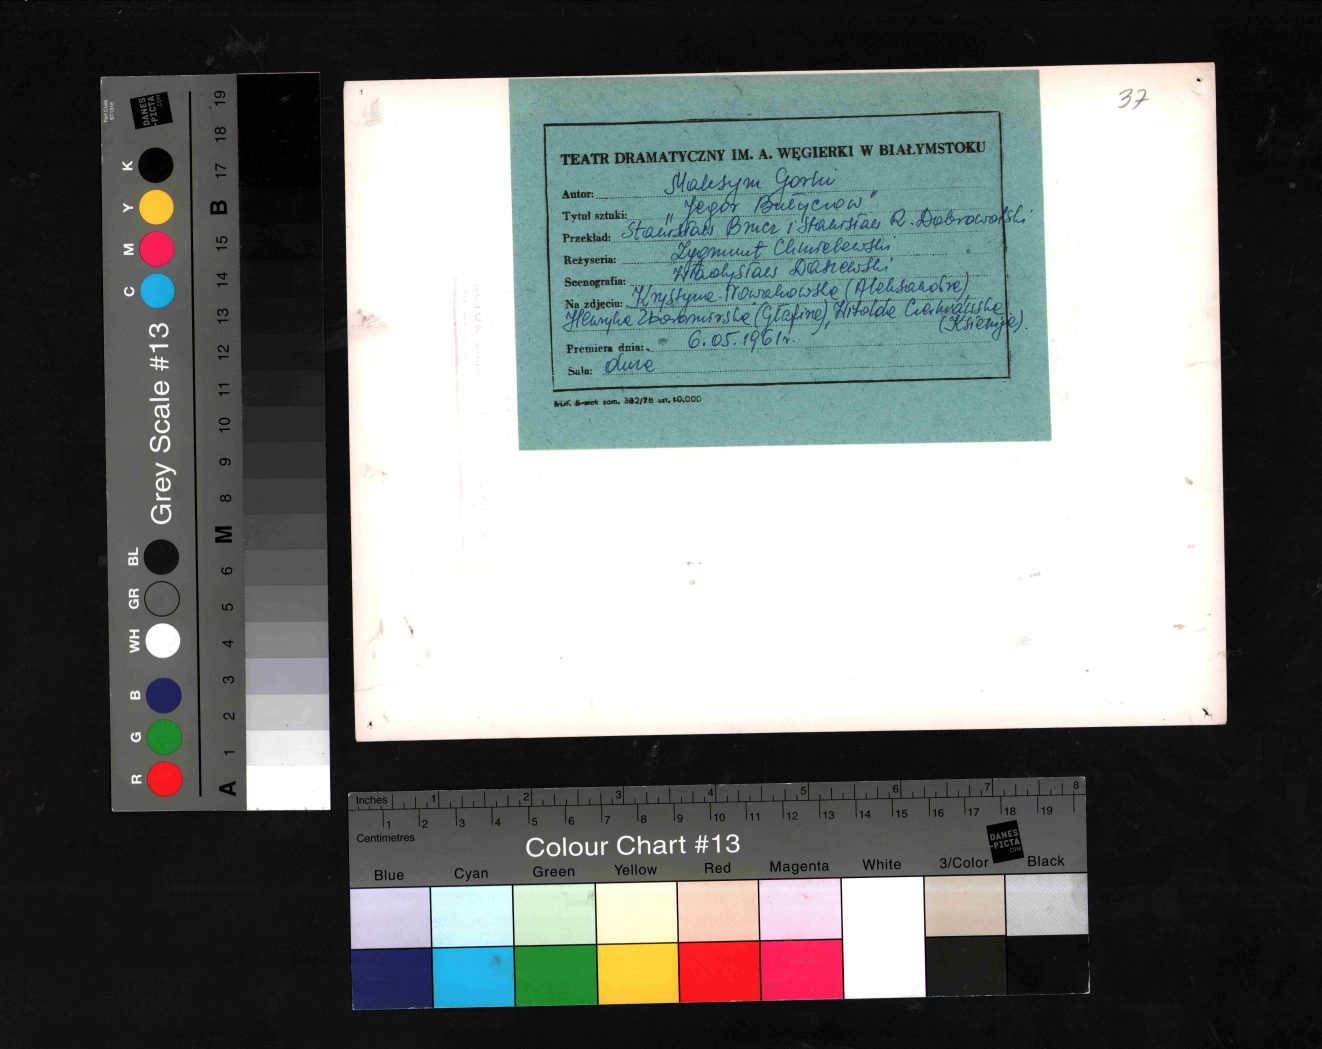 37
TEATR DRAMATYCZNY IM. A. WĘGIERKI W BIAŁYMSTOKU
Autor: Maksym Gorki
Tytuł sztuki: "Jegor Bułyczow"
Przekład: Stanisław Brucz i Stanisław R. Dobrowolski
Reżyseria: Zygmunt Chmielewski
Scenografia: Władysław Daszewski
Na zdjęciu: Krystyna Nowakowska (Aleksandra)
Henryka Zboromirska (Glafira), Witolda Czerniawska
(Ksienija).
Premiera dnia: 6.05.1961r.
Sala: duża
zam. 382/78 szt. 10.000
Part Code
ST1316
DANES
-PICTA
.COM
Grey Scale #13
R G B WH GR BL C M Y K
A 1 2 3 4 5 6 M 8 9 10 11 12 13 14 15 B 17 18 19
Inches 1 2 3 4 5 6 7 8
1 2 3 4 5 6 7 8 9 10 11 12 13 14 15 16 17 18 19
Centimetres
Colour Chart #13
DANES
-PICTA
.COM
Blue Cyan Green Yellow Red Magenta White 3/Color Black